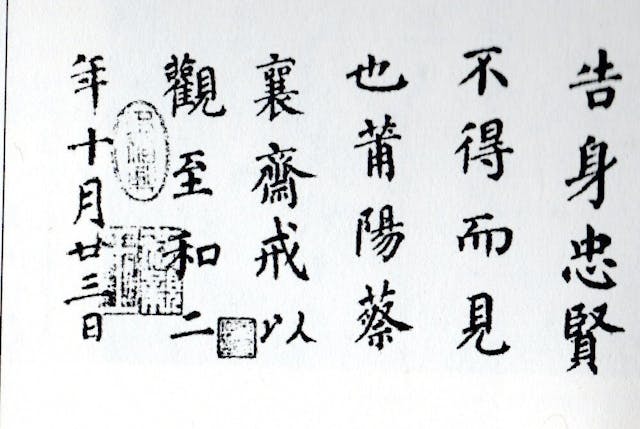 告身忠賢
不得而見
也莆陽蔡
襄齋戒以
觀至和二
年十月廿三日